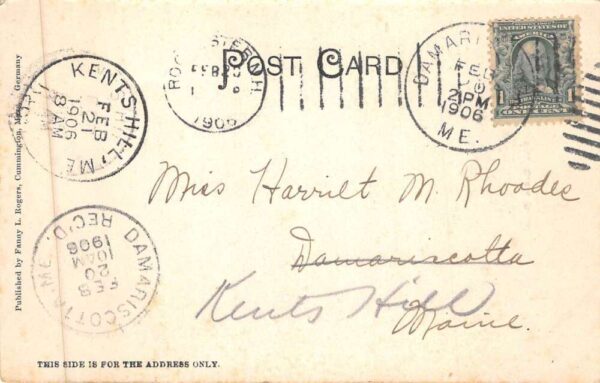 POST CARD
KENTS HILL, ME.
FEB
21
8 AM
1906
FEB
1906
DAMARI
FEB
2 PM
1906
ME.
UNITED STATES OF
AMERICA
1
1
ONE CENT
Miss Harriet M. Rhoades
Damariscotta
Kents Hill
Maine.
DAMARISCOTTA, ME.
REC'D.
FEB
20
10 AM
1906
Published by Fanny L. Rogers, Cummington, Mass. Germany
THIS SIDE IS FOR THE ADDRESS ONLY.